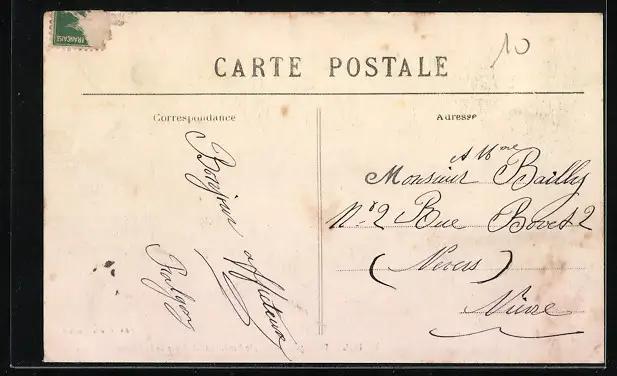 FRANÇAISE
10
CARTE POSTALE
Correspondance
Adresse
Bonjour affectueux
et Mme
Monsieur Bailly
No 2 Rue Bovet 2
(Nevers)
Nièvre